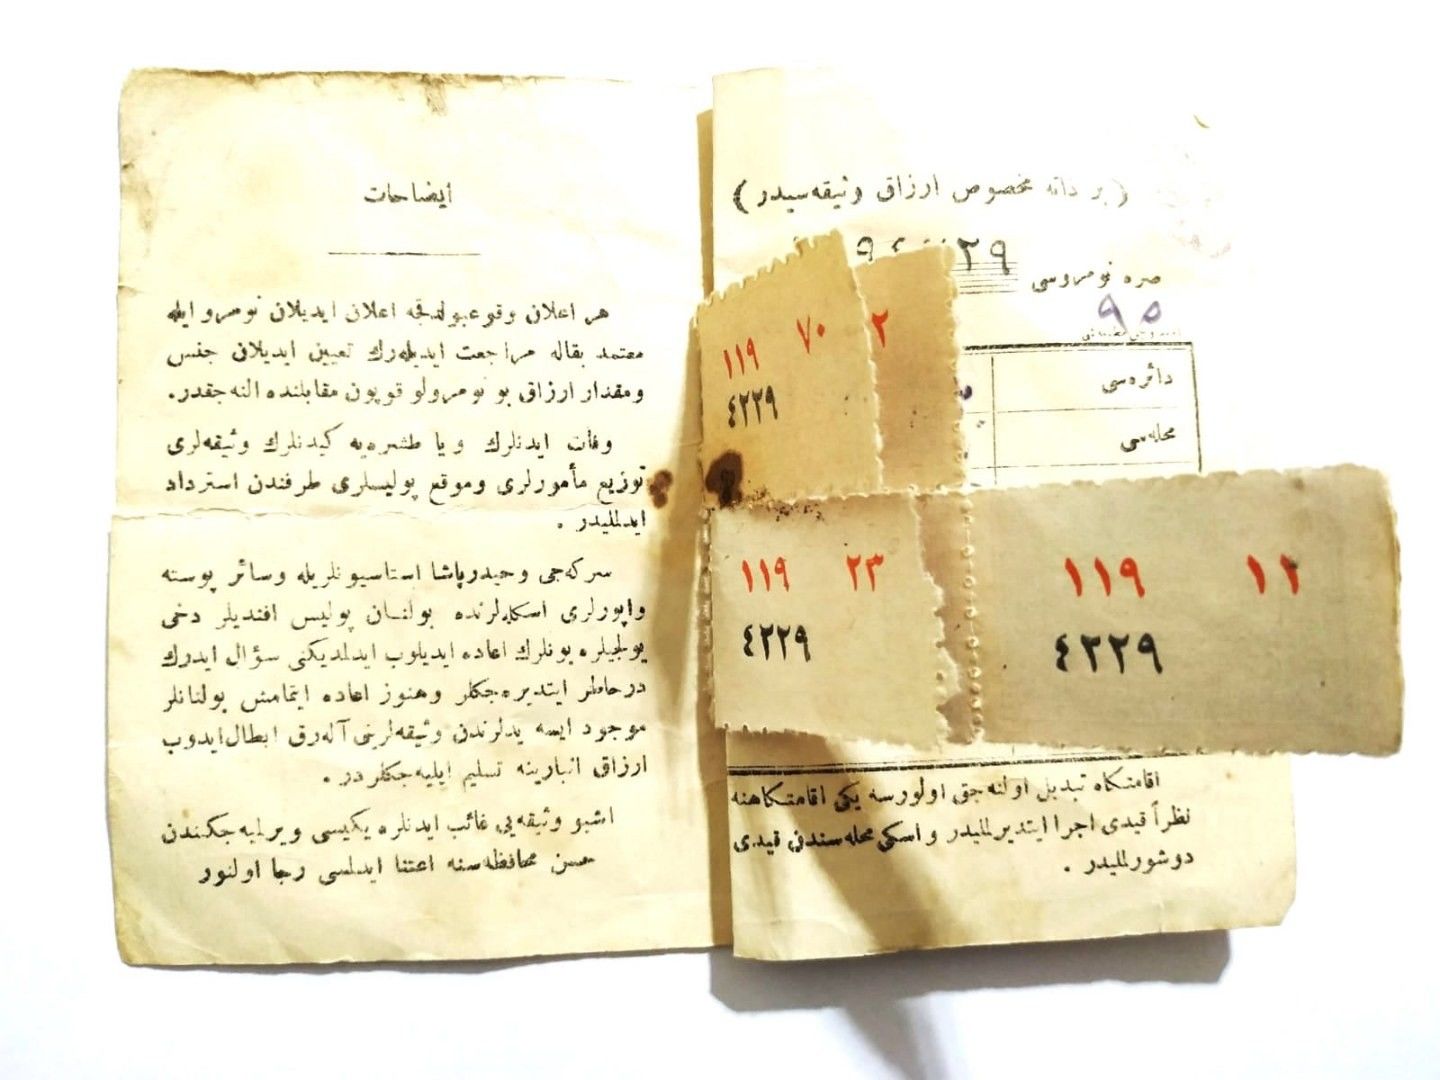 ايضاحات
هر اعلان وقوعبولدقجه اعلان ايديلان نومرو ايله
معتمد بقاله مراجعت ايديله‌رك تعيين ايديلان جنس
ومقدار ارزاق بو نومرولو قوپون مقابلنده النه‌جقدر.
وفات ايدنلرك ويا طشره‌يه كيدنلرك وثيقه‌لرى
توزيع مأمورلرى وموقع پوليسلرى طرفندن استرداد
ايدلمليدر .
سركه‌جى وحيدرپاشا استاسيونلريله وسائر پوسته
واپورلرى اسكله‌لرنده بولنان پوليس افنديلر دخى
يولجيلره بونلرك اعاده ايديلوب ايدلمديكنى سؤال ايدرك
درخاطر ايتديره‌جكلر وهنوز اعاده ايتمامش بولنانلر
موجود ايسه يدلرندن وثيقه‌لرينى آله‌رق ابطال ايدوب
ارزاق انبارينه تسليم ايليه‌جكلردر .
اشبو وثيقه‌يى غائب ايدنلره يكيسى ويرلميه‌جكندن
حسن محافظه‌سنه اعتنا ايدلسى رجا اولنور
(بر دانه مخصوص ارزاق وثيقه‌سيدر)
صره نومروسى
٩٥
دائره‌سى
محله‌سى
١١٩ ٧٠
٤٢٢٩
٢
١١٩ ٢٣
٤٢٢٩
١١٩ ١٢
٤٢٢٩
اقامتكاه تبديل اولنه‌جق اولورسه يكى اقامتكاهنه
نظراً قيدى اجرا ايتديرلمليدر واسكى محله‌سندن قيدى
دوشورلمليدر .